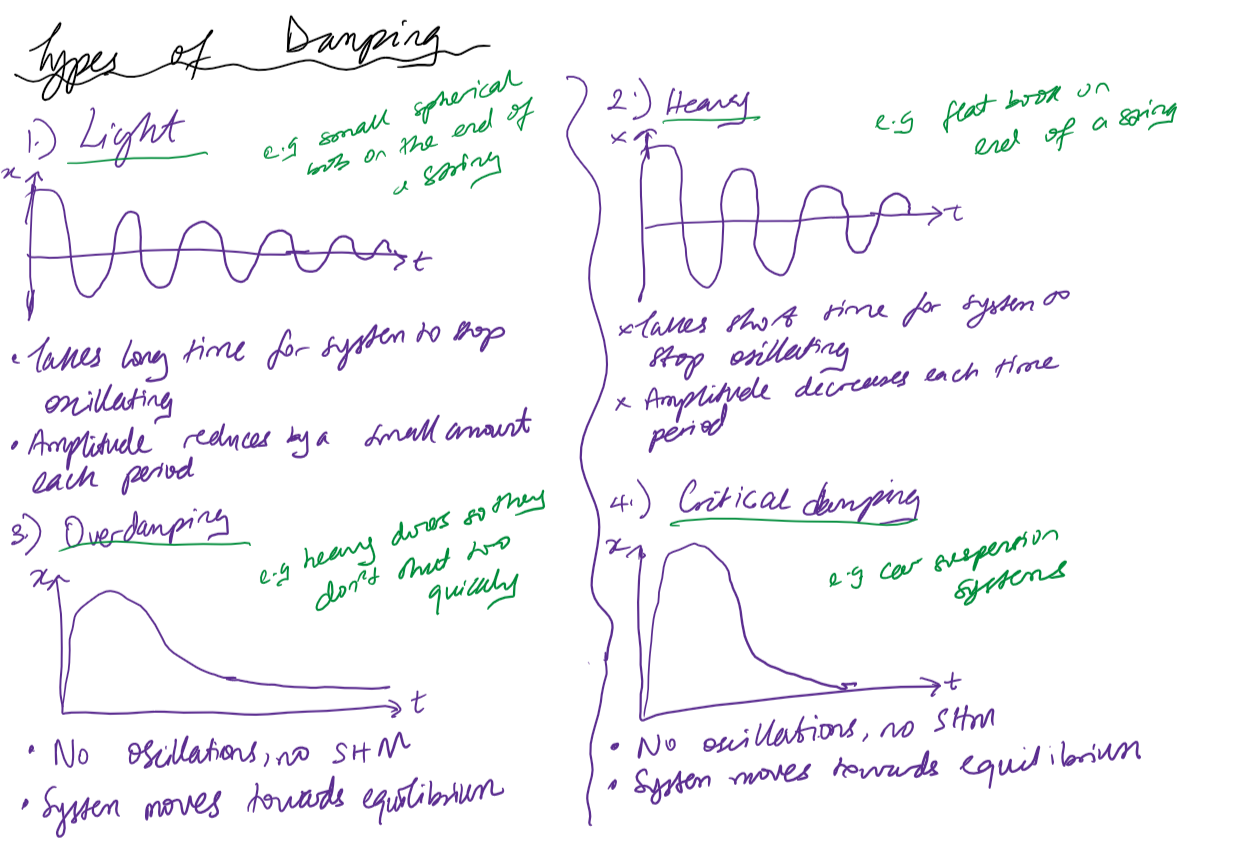 Types of Damping
1.) Light
e.g small spherical
bob on the end of
a spring
x
t
• Takes long time for system to stop
oscillating
• Amplitude reduces by a small amount
each period
2.) Heavy
e.g flat book on
end of a spring
x
t
x Takes short time for system to
stop osillating
x Amplitude decreases each time
period
3.) Overdamping
e.g heavy doors so they
don't shut too
quickly
x
t
• No oscillations, no SHM
• System moves towards equilibrium
4.) Critical damping
e.g car suspension
systems
x
t
• No oscillations, no SHM
• System moves towards equilibrium